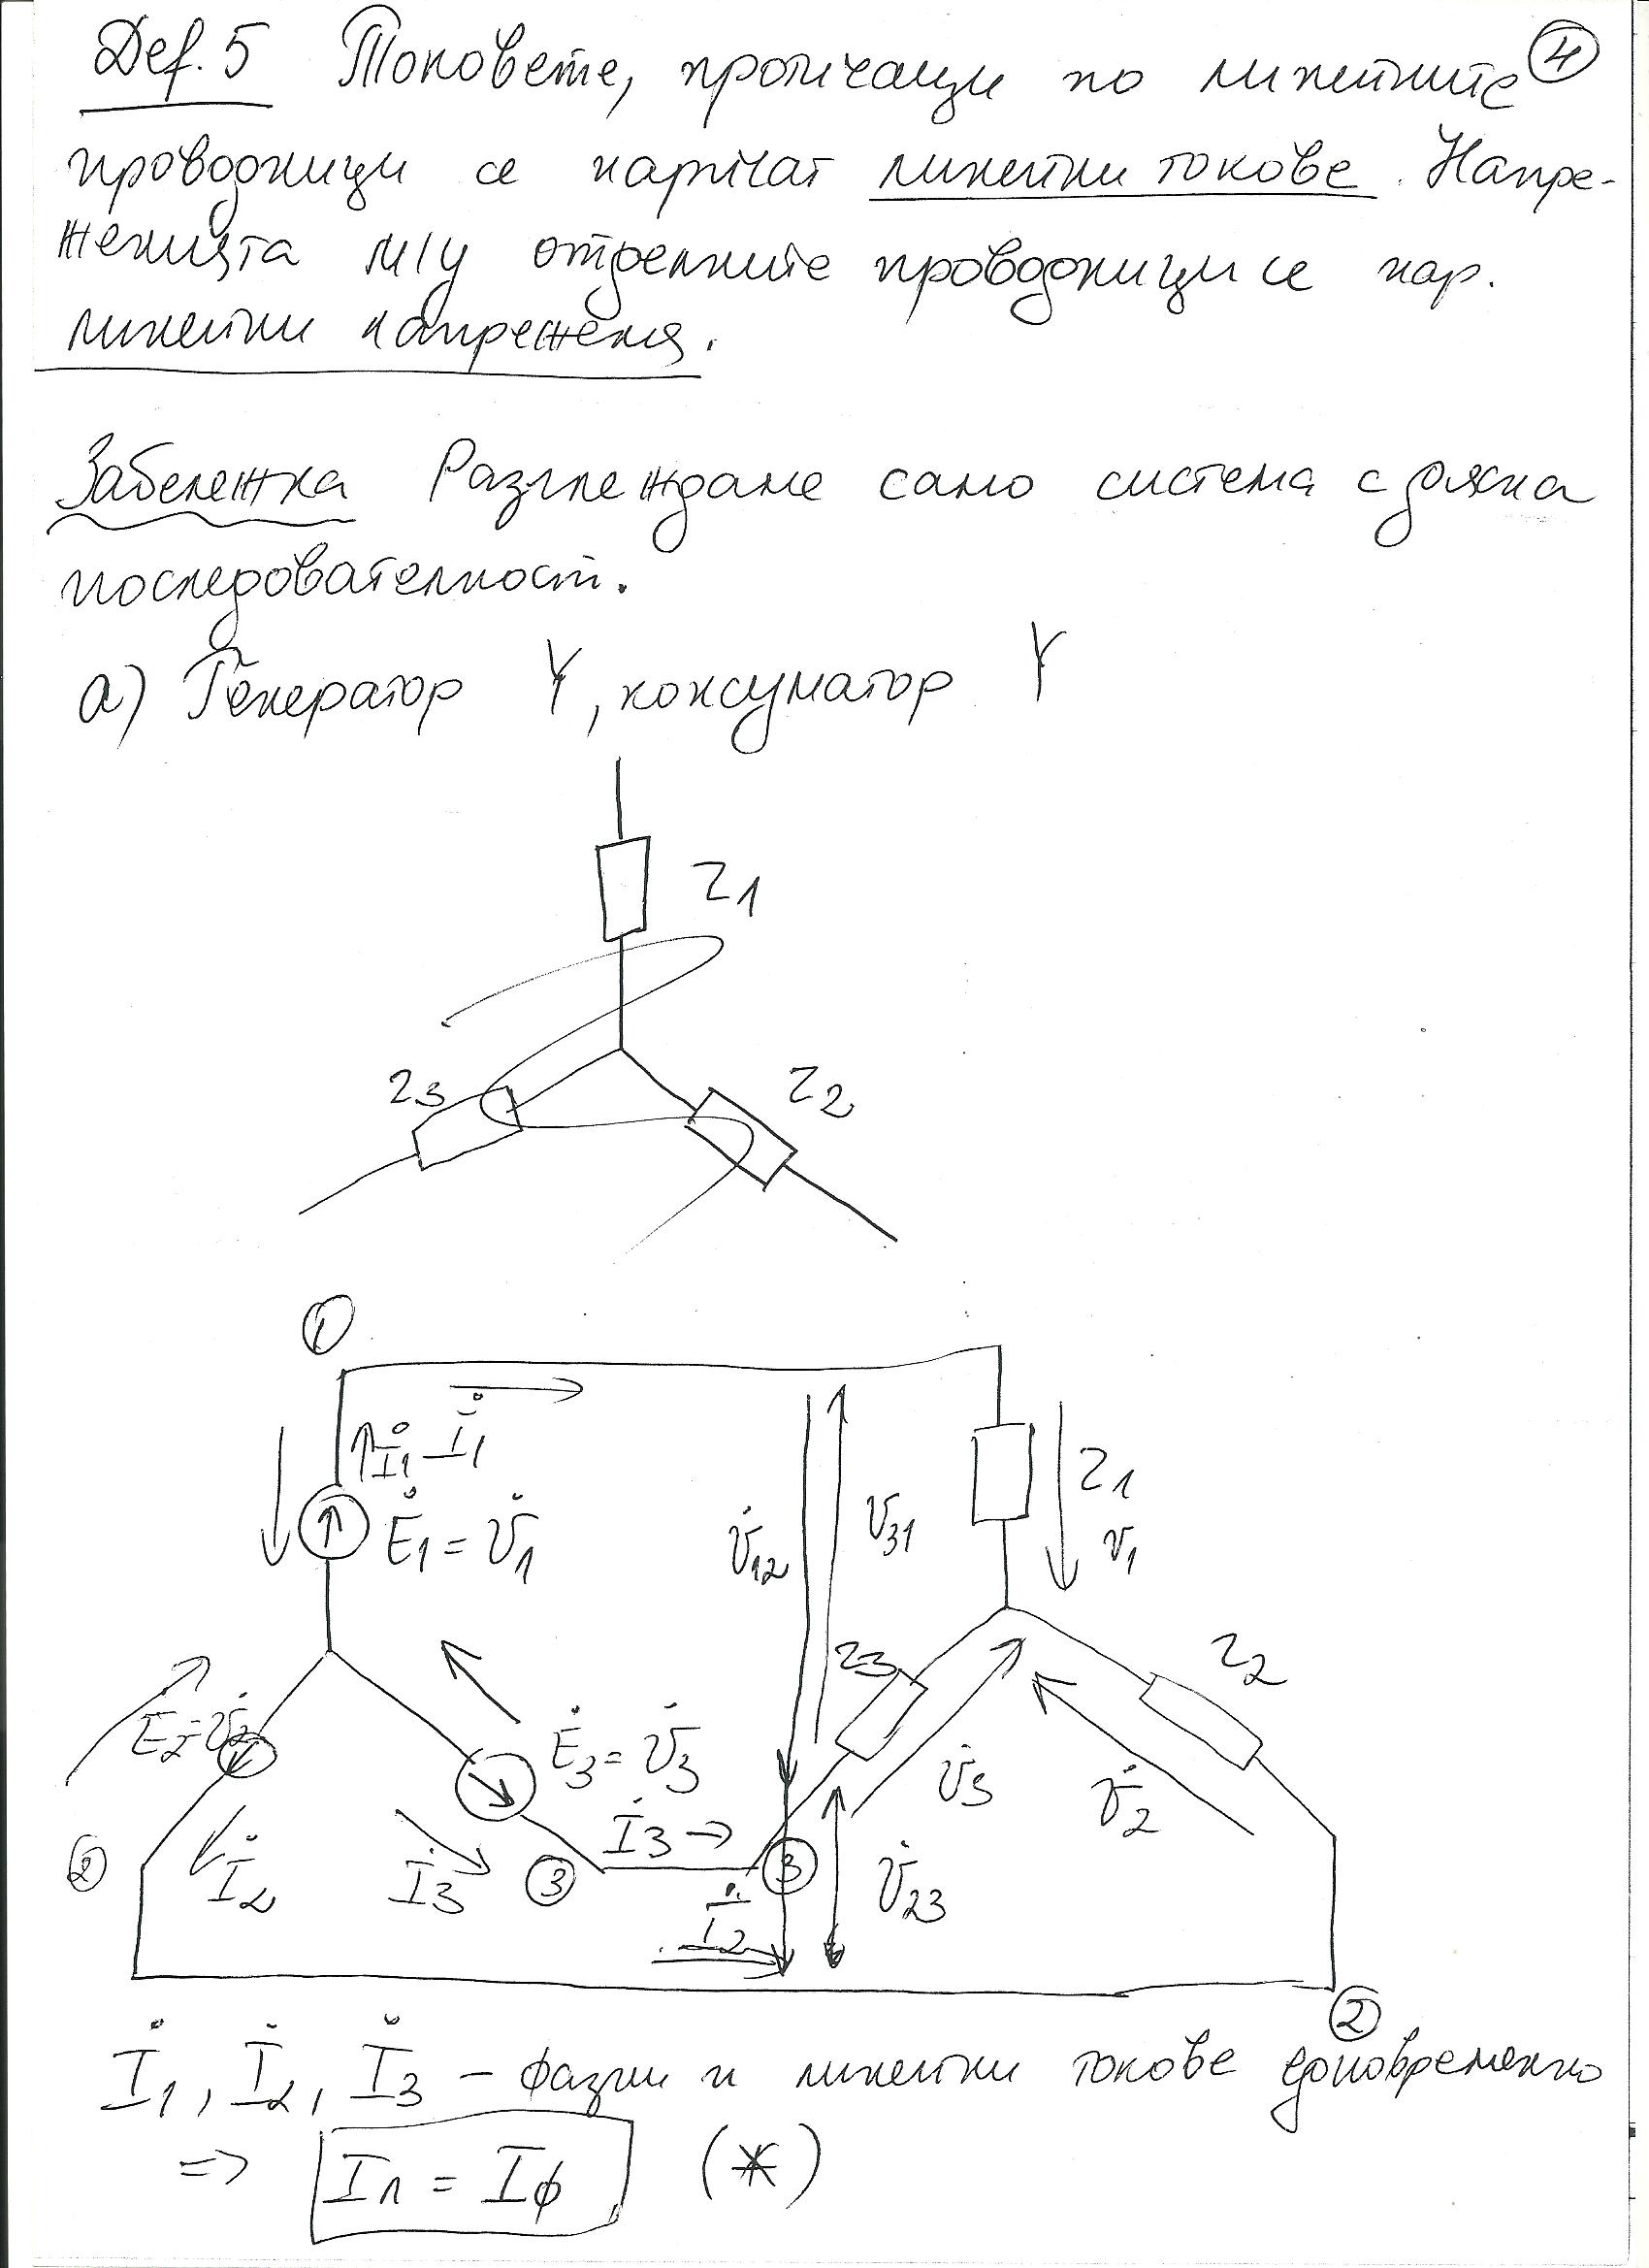 Def. 5 Токовете, протичащи по линейните ④
проводници се наричат линейни токове. Напре-
женията м/у отделните проводници се нар.
линейни напрежения.
Забележка Разглеждаме само система с дясна
последователност.
а) Генератор Y, консуматор Y
Z1
Z3
Z2
①
İ1 İ1
Ė1 = U̇1
U̇12
U31
Z1
U1
Z3
Z2
Ė2=U̇2
Ė3 = U̇3
U̇3
U̇2
②
İ2
İ3
③
İ3 →
③
U̇23
İ2
②
İ1, İ2, İ3 – фазни и линейни токове едновременно
=> Iл = Iф (*)